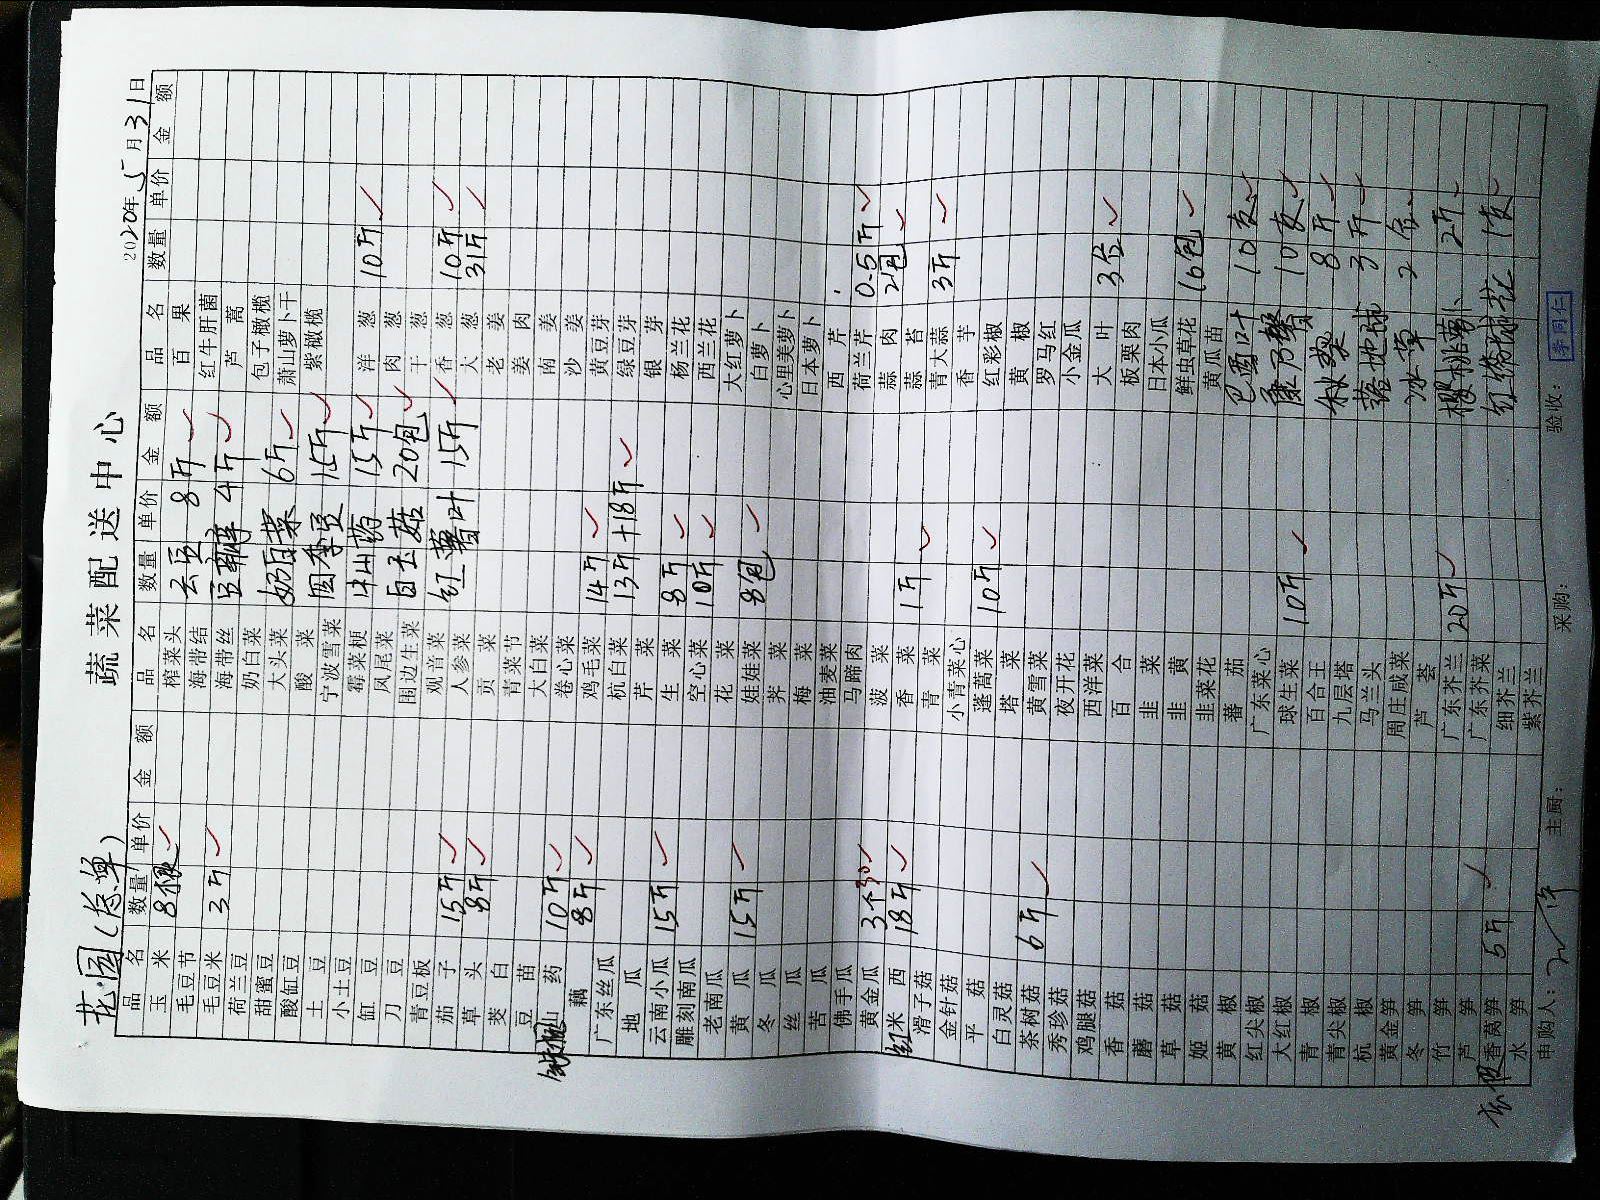 蔬菜配送中心
花园(总单)
2020年5月31日
品名 数量 单价 金额
玉米 8根
毛豆节
毛豆米 3斤
荷兰豆
甜蜜豆
酸缸豆
土豆
小土豆
缸豆
刀豆
青豆板
茄子 15斤
草头 8斤
茭白
豆苗
铁棍山药 10斤
藕 8斤
广东丝瓜
地瓜
云南小瓜 15斤
雕刻南瓜
老南瓜
黄瓜 15斤
冬瓜
丝瓜
苦瓜
佛手瓜
黄金瓜 3个
红米西 18斤
滑子菇
金针菇
平菇
白灵菇
茶树菇 6斤
秀珍菇
鸡腿菇
香菇
蘑菇
草菇
姬菇
黄椒
红尖椒
大红椒
青椒
青尖椒
杭椒
黄金笋
冬笋
竹笋
芦笋
香莴笋 5斤
水笋
品名 数量 单价 金额
榨菜头 云豆 8斤
海带结
海带丝 4斤
奶白菜
大头菜 奶白菜 6斤
酸菜
宁波雪菜 四季豆 15斤
霉菜梗 山药 15斤
凤尾菜
围边生菜 白玉菇 20包
观音菜 红薯叶 15斤
人参菜
贡菜
青菜节
大白菜
卷心菜
鸡毛菜 14斤
杭白菜 13斤+18斤
芹菜
生菜 8斤
空心菜 10斤
花菜
娃娃菜 8包
荠菜
梅菜
油麦菜
马蹄肉
菠菜
香菜 1斤
青菜
小青菜心
蓬蒿菜 10斤
塔菜
黄雪菜
夜开花
西洋菜
百合
韭菜
韭黄
韭菜花
蕃茄
广东菜心
球生菜 10斤
百合王
九层塔
马兰头
周庄咸菜
芦荟
广东芥兰 20斤
广东芥菜
细芥兰
紫芥兰
品名 数量 单价 金额
百果
红牛肝菌
芦蒿
包子橄榄
萧山萝卜干
紫橄榄
洋葱 10斤
肉葱
干葱
香葱 10斤
大葱 31斤
老姜
姜肉
南姜
沙姜
黄豆芽
绿豆芽
银芽
杨兰花
西兰花
大红萝卜
白萝卜
心里美萝卜
日本萝卜
西芹
荷兰芹 0.5斤
蒜肉 2包
蒜苔
青大蒜 3斤
香芋
红彩椒
黄椒
罗马红
小金瓜
大叶
板栗肉
日本小瓜
鲜虫草花 16包
黄瓜苗
巴西叶 10支
康乃馨 10支
秋葵 8斤
3斤
冰草 2盒
樱桃萝卜 2斤
红绣球花 1支
申购人:
主厨:
采购:
验收: